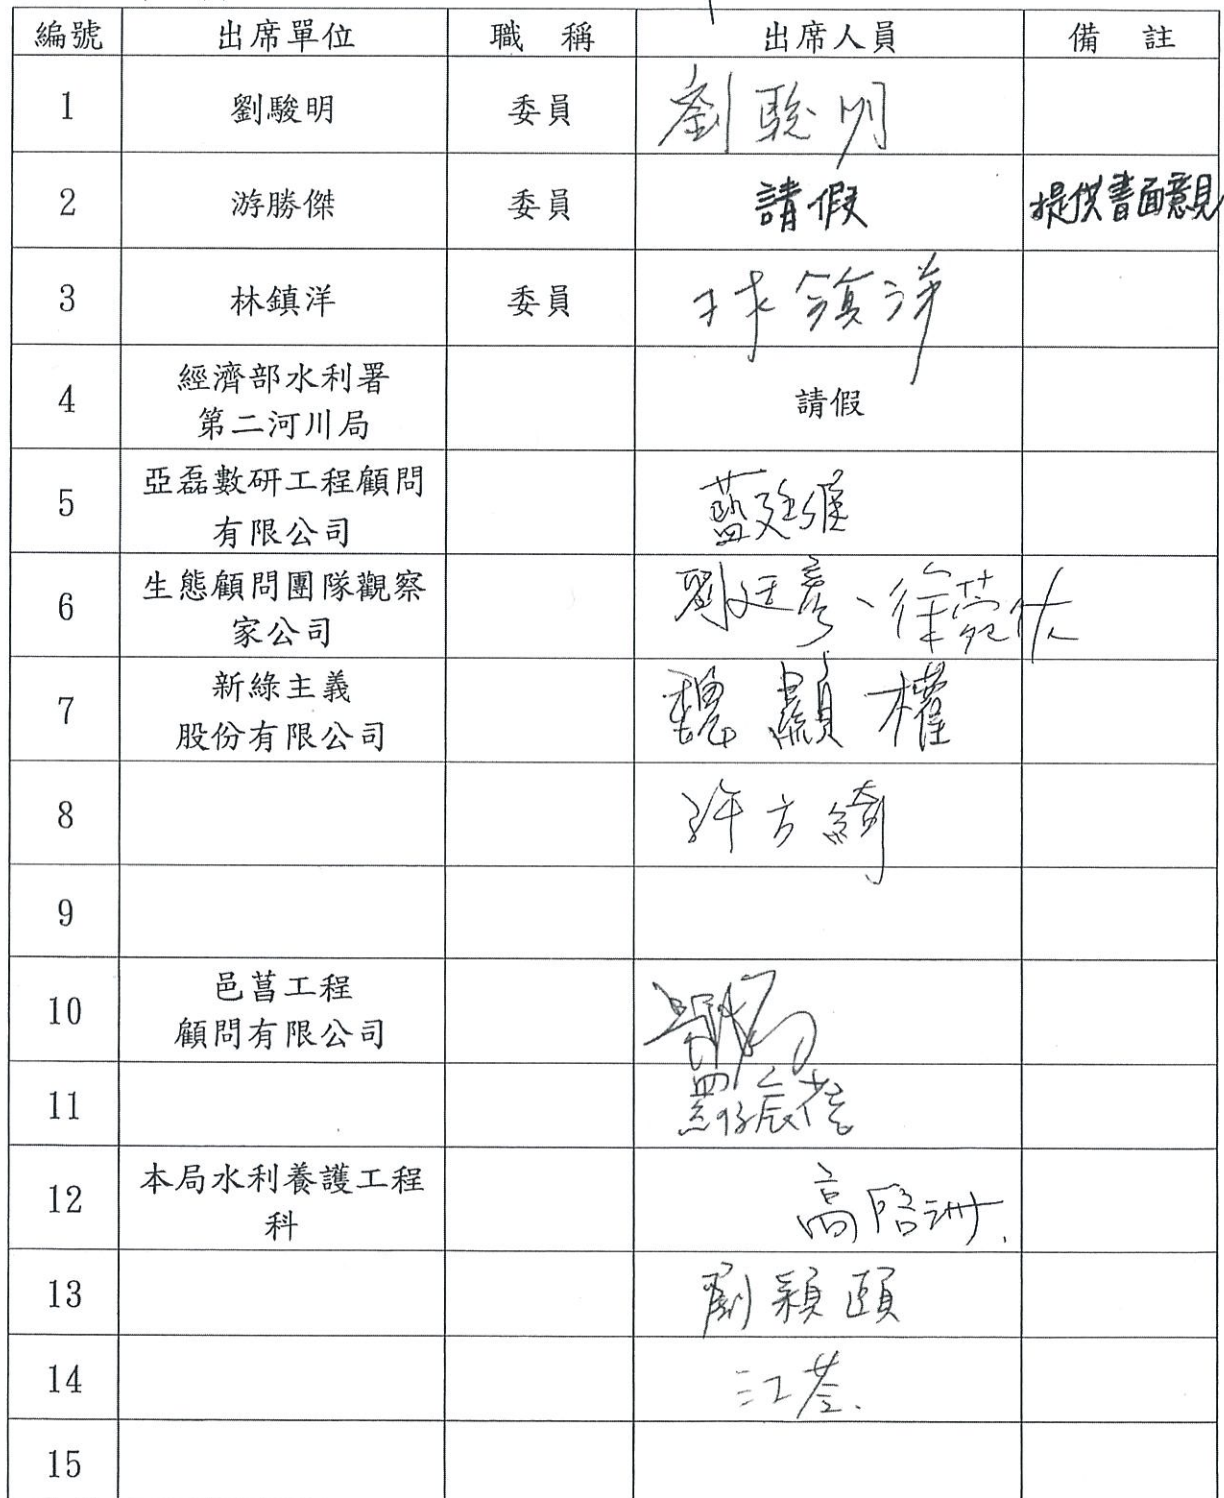 編號 出席單位 職稱 出席人員 備註
1 劉駿明 委員 劉駿明
2 游勝傑 委員 請假 提供書面意見
3 林鎮洋 委員 林鎮洋
4 經濟部水利署 請假
第二河川局
5 亞磊數研工程顧問
有限公司
6 生態顧問團隊觀察 劉廷彥、徐菀佐
家公司
7 新綠主義 魏顯權
股份有限公司
8 許方綺
9
10 邑菖工程
顧問有限公司
11
12 本局水利養護工程
科
13 劉穎頤
14 江荃
15